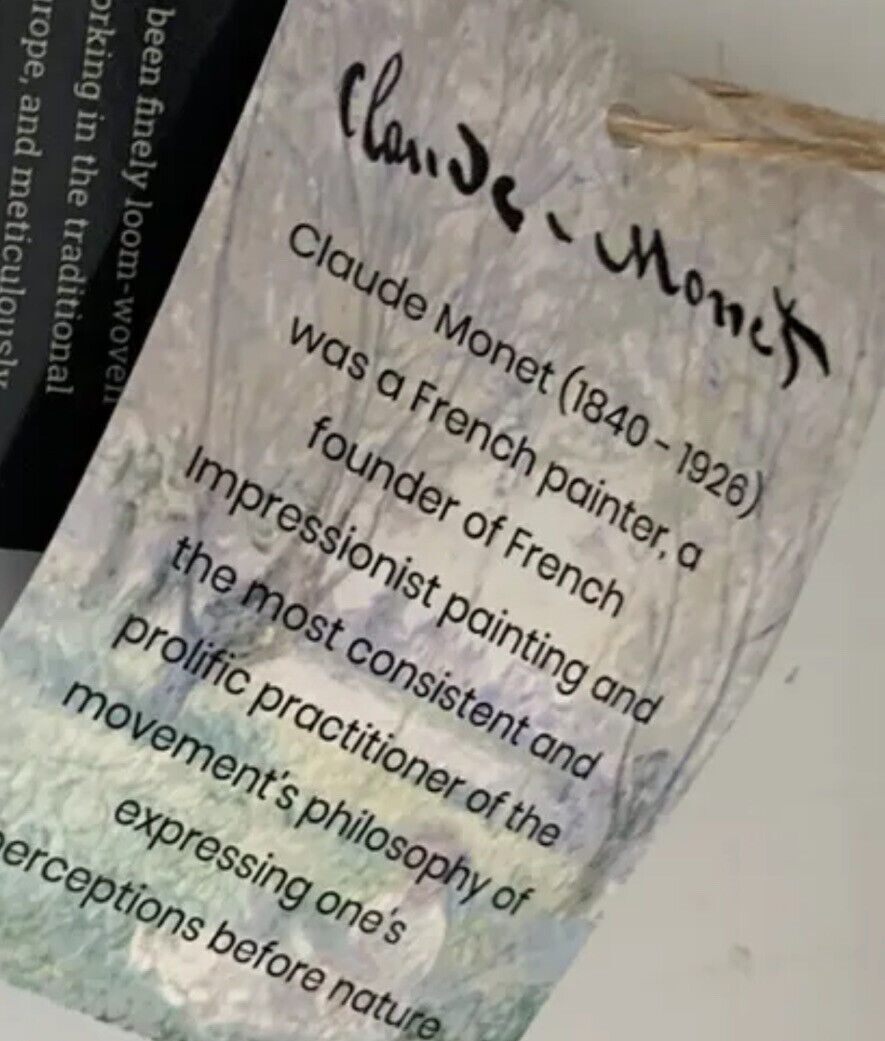 Claude Monet
Claude Monet (1840 - 1926)
was a French painter, a
founder of French
Impressionist painting and
the most consistent and
prolific practitioner of the
movement's philosophy of
expressing one's
erceptions before nature
been finely loom-woven
orking in the traditional
urope, and meticulously